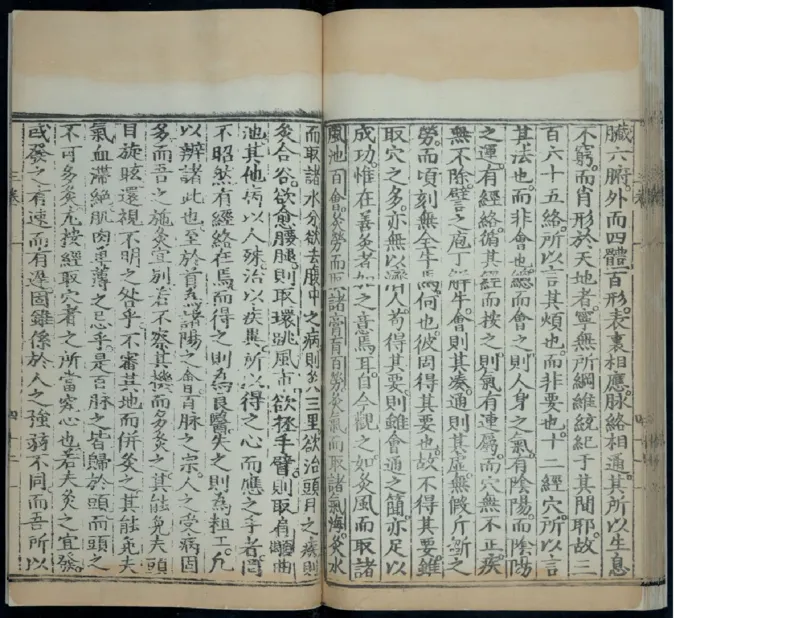 臟六腑外而四體百形表裏相應脉絡相通其所以生息
不窮而肖形於天地者寧無所綱維統紀于其間耶故三
百六十五絡所以言其煩也而非要也十二經穴所以言
其法也而非會也總而會之則人身之氣有陰陽而陰陽
之運有經絡循其經而按之則氣有連屬而穴無不正疾
無不除譬之庖丁解牛會則其湊通則其虛無假斤斲之
勞而頃刻無全牛焉何也彼固得其要也故不得其要雖
取穴之多亦無以濟人苟得其要則雖會通之簡亦足以
成功惟在善灸者加之意焉耳自今觀之如灸風而取諸
風池百會灸勞而取諸膏肓百勞灸氣而取諸氣海灸水
而取諸水分欲去腹中之病則灸三里欲治頭目之疾則
灸合谷欲愈腰腿則取環跳風市欲拯手臂則取肩髃曲
池其他病以人殊治以疾異所以得之心而應之手者罔
不昭然有經絡在焉而得之則為良醫失之則為粗工凡
以辨諸此也至於首為諸陽之會百脉之宗人之受病固
多而吾之施灸宜別若不察其機而多灸之其能免夫頭
目旋眩還視不明之咎乎不審其地而併灸之其能免夫
氣血滯絕肌肉單薄之忌乎是百脉之皆歸於頭而頭之
不可多灸尤按經取穴者之所當究心也若夫灸之宜發
或發之有速而有遲固雖係於人之強弱不同而吾所以
三卷
四十二